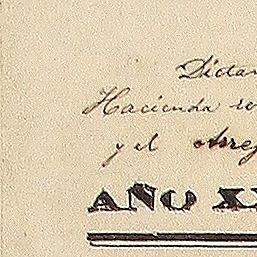 Dictam
Hacienda so
y el Arreg
AÑO XX